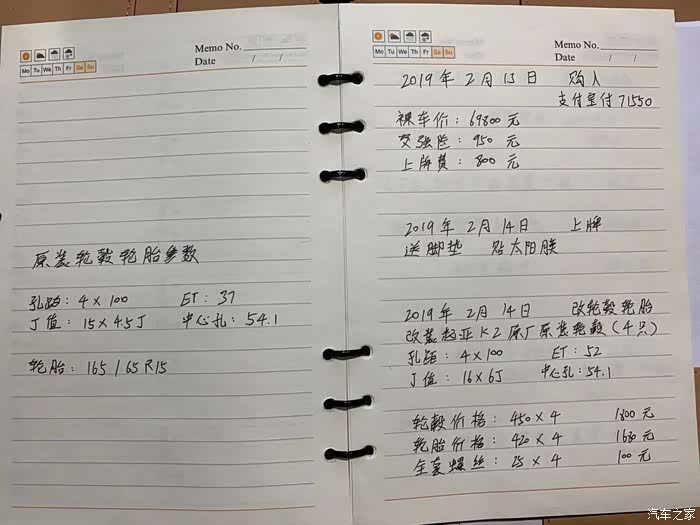 Memo No.
Mo Tu We Th Fr Sa Su
Date / /
原装轮毂轮胎参数
孔距: 4×100 ET: 37
J值: 15×4.5J 中心孔: 54.1
轮胎: 165/65R15
Memo No.
Mo Tu We Th Fr Sa Su
Date / /
2019年2月13日 购入
支付宝付71550
裸车价: 69800元
交强险: 950元
上牌费: 800元
2019年2月14日 上牌
送脚垫 贴太阳膜
2019年2月14日 改轮毂轮胎
改装起亚K2原厂原装轮毂(4只)
孔距: 4×100 ET: 52
J值: 16×6J 中心孔: 54.1
轮毂价格: 450×4 1800元
轮胎价格: 420×4 1680元
全套螺丝: 25×4 100元
汽车之家